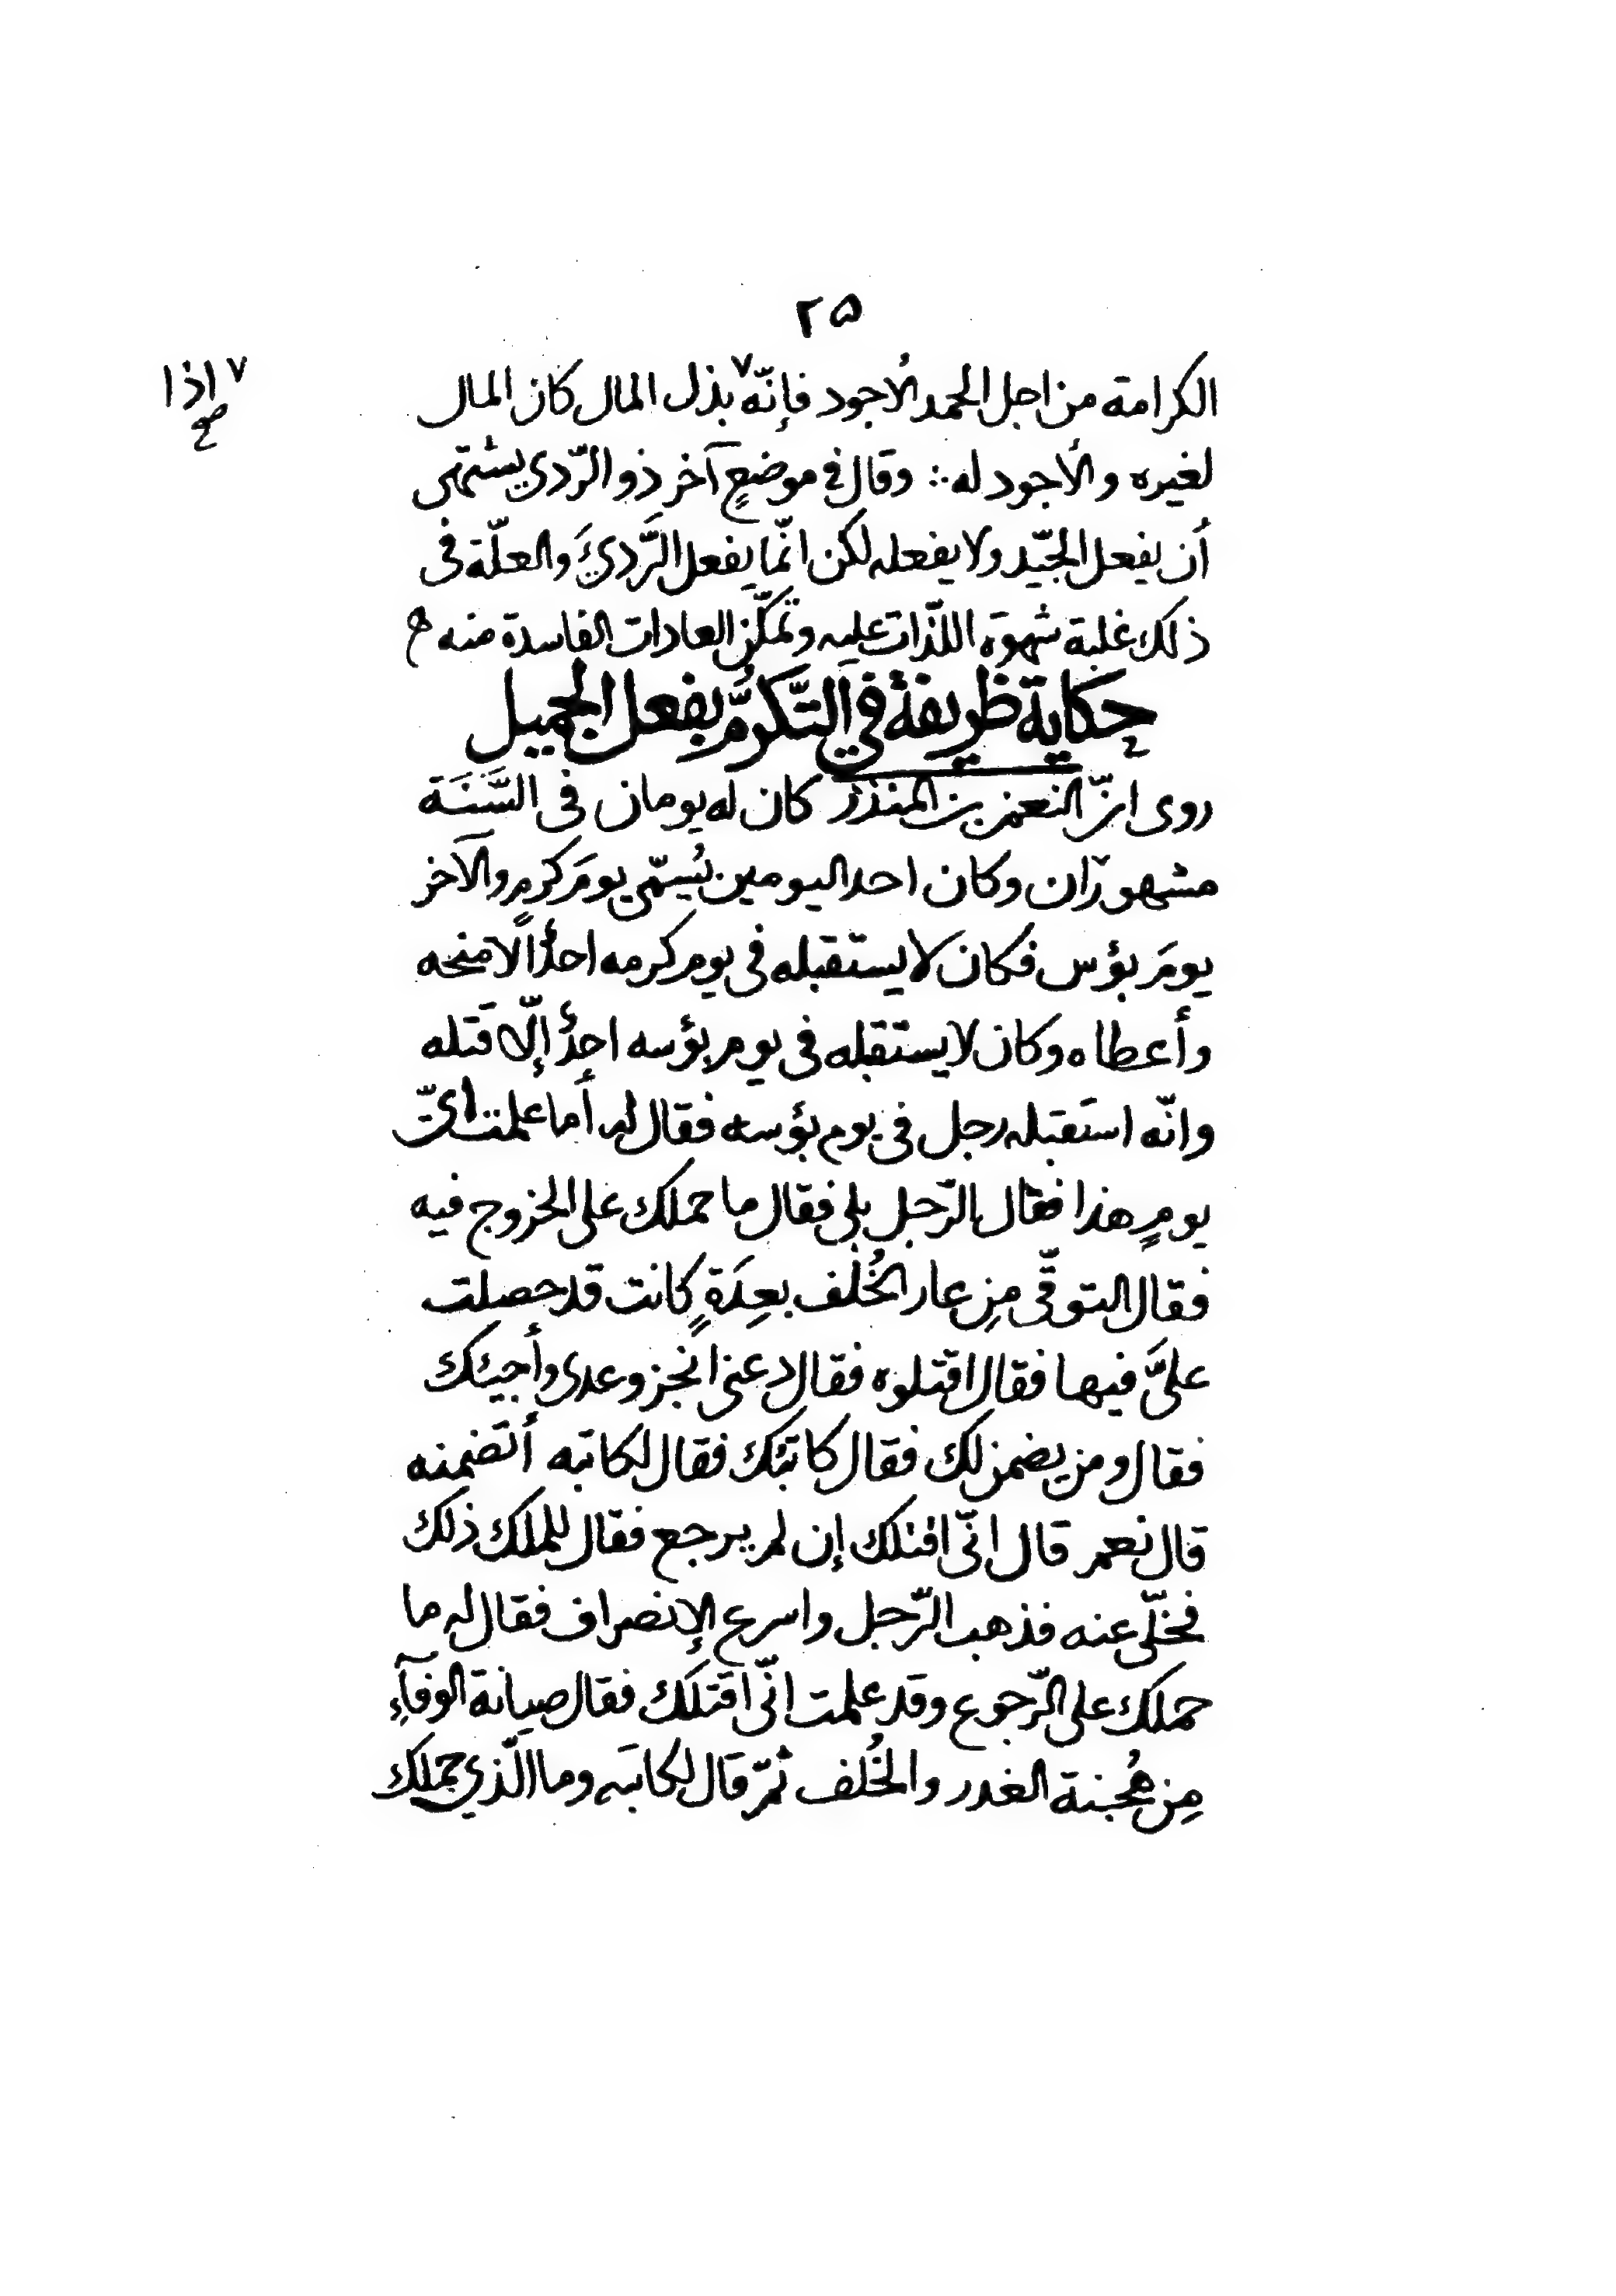 ٢٥
الكرامة من اجل الحمد الأجود فإنّه ٧ بذل المال كان المال
٧ اذا
صح
لغيره والأجود له ∴ وقال في موضعٍ آخر ذو الرّدي يشتهى
أن يفعل الجيّد ولا يفعله لكن انّما يفعل الرَّديَ والعلّة فى
ذلك غلبة شهوة اللّذات عليه وتمكّن العادات الفاسدة منه
حكاية ظريفة في التّكرّم بفعل الجميل
روى انّ النعمن بن المنذر كان له يومان فى السَّنَة
مشهورَان وكان احد اليومين يُسمّى يومَ كرمٍ والآخر
يومَ بؤس فكان لا يستقبله فى يوم كرمه احدٌ الا منحه
وأعطاه وكان لا يستقبله فى يوم بؤسه احدٌ إلّا قتله
وانّه استقبله رجل فى يوم بؤسه فقال له أما علمت أىّ
يومٍ هذا فقال الرّجل بلى فقال ما حملك على الخروج فيه
فقال التوقّى مِن عار الخُلف بعِدَةٍ كانت قد حصلت
علىَّ فيها فقال اقتلوه فقال دعنى انجز وعدى وأجيئك
فقال ومن يضمن لك فقال كاتبك فقال لكاتبه أتضمنه
قال نعم قال انّى اقتلك إن لم يرجع فقال للملك ذلك
فخلّى عنه فذهب الرّجل واسرع الإنصراف فقال له ما
حملك على الرّجوع وقد علمت انّى اقتلك فقال صيانة الوفآءِ
مِن هُجنة الغدر والخُلف ثمّ قال لكاتبه وما الّذي حملك